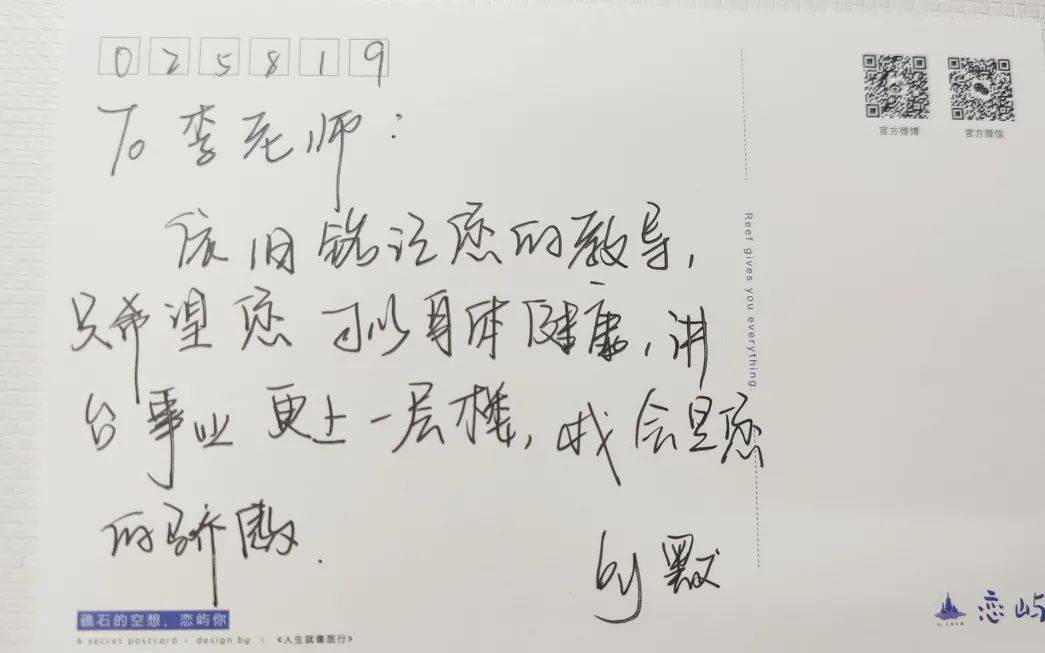 025819
To 李老师：
依旧铭记您的教导，
只希望您可以身体健康，讲
台事业更上一层楼，我会是您
的骄傲.
by 默
官方微博
官方微信
Reef gives you everything.
礁石的空想，恋屿你
A secret postcard : design by : 《人生就像旅行》
恋屿